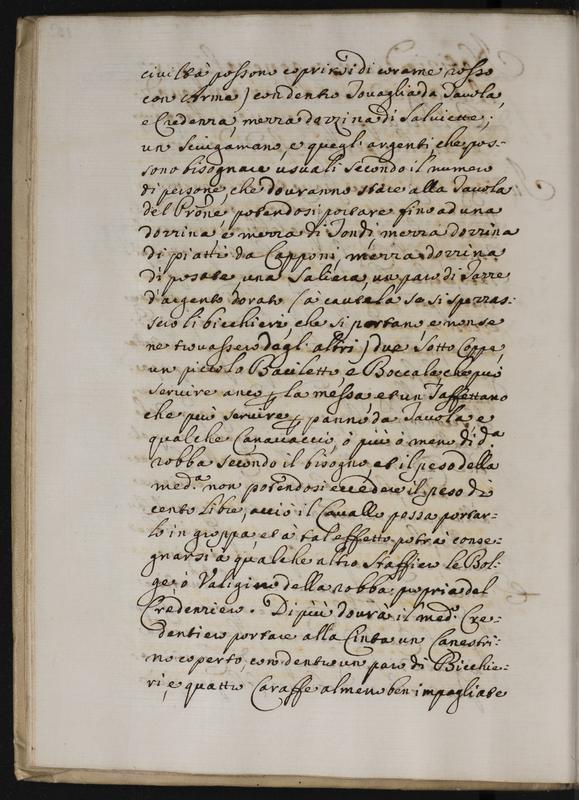 civiltà possono coprirsi di corame rosso
con l'arme) con dentro Tovaglia da Tavola,
e Credenza, mezza dozzina di Salviette,
un Sciugamano, e quegli argenti che pos-
sono bisognare usuali secondo il numero
di persone, che dovranno stare alla Tavola
del Prōne potendosi portare fino ad una
dozzina e mezza di Tondi, mezza dozzina
di piatti da Capponi, mezza dozzina
di posate, una Saliera, un paro di Tazze
d'argento dorato (à cautela se si spezzas-
sero li bicchieri, che si portano, e non se
ne trovassero degl'altri) due Sotto Coppe,
un piccolo Bacilettо e Boccale che può
servire anco p la messa et un Taffettano
che può servire p panno da Tavola e
qualche Canavaccio, ò più ò meno di d.a
robba secondo il bisogno et il peso della
med.a non potendosi eccedere il peso di
cento libre, acciò il Cavallo possa portar-
lo in groppa, et à tal'effetto potrà conse-
gnarsi à qualche altro Staffiero le Bol-
ge ò Valigino della robba propria del
Credenziero. Di più dovrà il med.o Cre-
dentiero portare alla Cinta un Canestri-
no coperto, con dentro un paro di Bicchie-
ri, e quattro Caraffe almeno ben impagliate